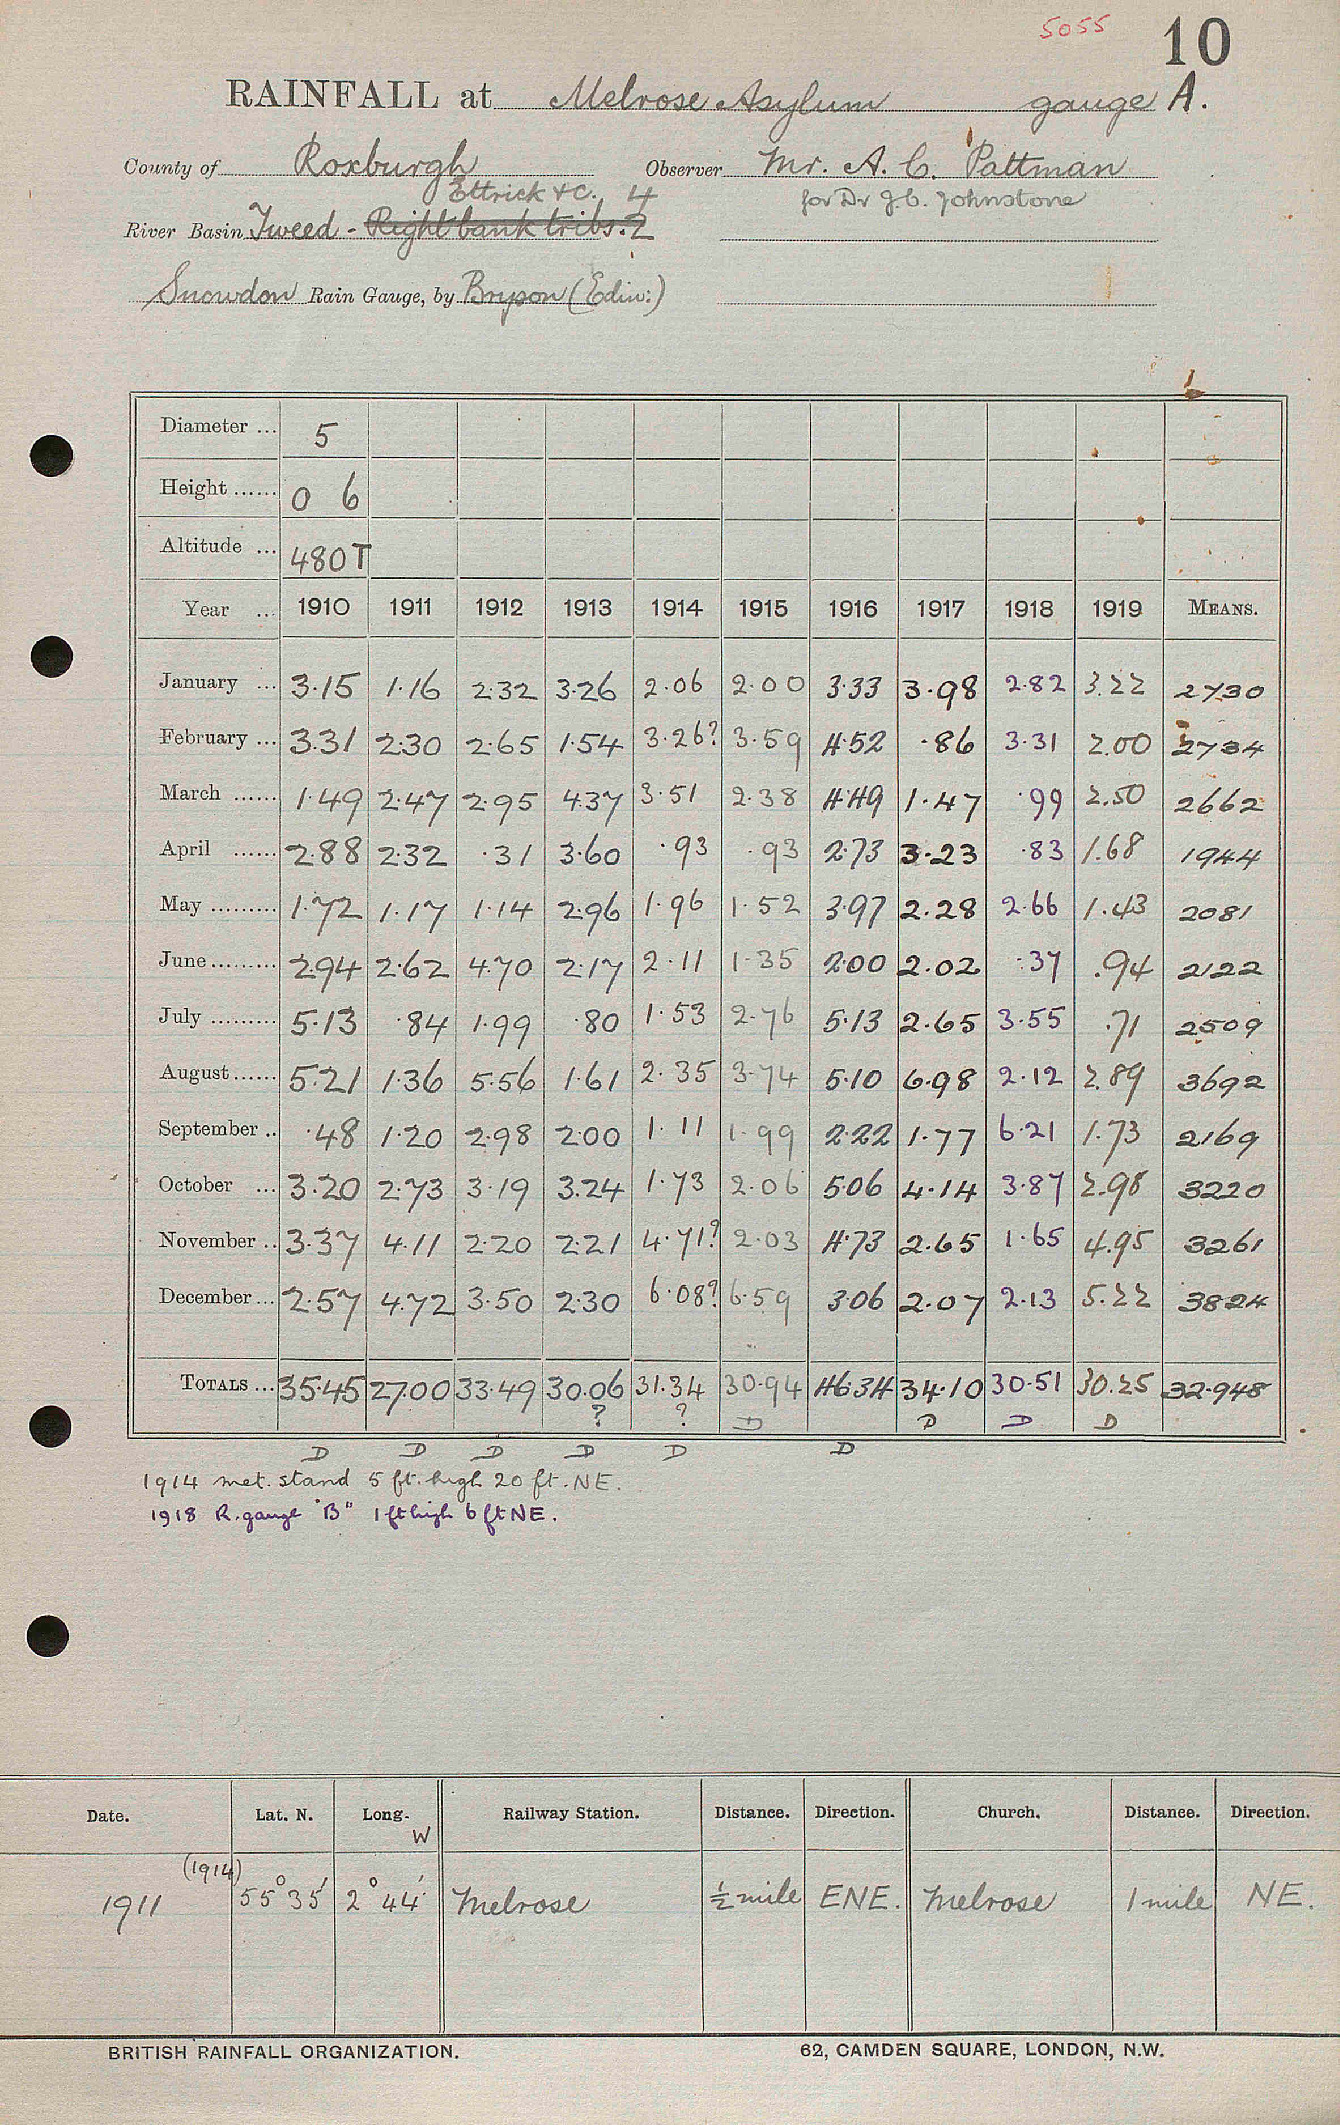 5055 10
RAINFALL at Melrose Asylum gauge A.
County of Roxburgh Observer Mr. A. C. Pattman
Ettrick &c. 4 for Dr J C. Johnstone
River Basin Tweed - Right bank tribs. 2
Snowdon Rain Gauge, by Bryson (Edin:)
Diameter ... 5
Height ...... 0 6
Altitude ... 480T
Year ... 1910 1911 1912 1913 1914 1915 1916 1917 1918 1919 MEANS.
January ... 3.15 1.16 2.32 3.26 2.06 2.00 3.33 3.98 2.82 3.22 2730
February ... 3.31 2.30 2.65 1.54 3.26? 3.59 4.52 .86 3.31 2.00 2734
March ...... 1.49 2.47 2.95 4.37 3.51 2.38 4.49 1.47 .99 2.50 2662
April ...... 2.88 2.32 .31 3.60 .93 .93 2.73 3.23 .83 1.68 1944
May ......... 1.72 1.17 1.14 2.96 1.96 1.52 3.97 2.28 2.66 1.43 2081
June ......... 2.94 2.62 4.70 2.17 2.11 1.35 2.00 2.02 .37 .94 2122
July ......... 5.13 .84 1.99 .80 1.53 2.76 5.13 2.65 3.55 .71 2509
August ...... 5.21 1.36 5.56 1.61 2.35 3.74 5.10 6.98 2.12 2.89 3692
September .. .48 1.20 2.98 2.00 1.11 1.99 2.22 1.77 6.21 1.73 2169
October ... 3.20 2.73 3.19 3.24 1.73 2.06 5.06 4.14 3.87 2.98 3220
November .. 3.37 4.11 2.20 2.21 4.71? 2.03 4.73 2.65 1.65 4.95 3261
December ... 2.57 4.72 3.50 2.30 6.08? 6.59 3.06 2.07 2.13 5.22 3824
TOTALS ... 35.45 27.00 33.49 30.06 31.34 30.94 46.34 34.10 30.51 30.25 32.948
? ? D D D D
D D D D D D
1914 met. stand 5 ft. high 20 ft. NE.
1918 R. gauge "B" 1 ft high 6 ft NE.
Date. Lat. N. Long. W Railway Station. Distance. Direction. Church. Distance. Direction.
(1914)
1911 55° 35' 2° 44' Melrose ½ mile ENE. Melrose 1 mile NE.
BRITISH RAINFALL ORGANIZATION. 62, CAMDEN SQUARE, LONDON, N.W.